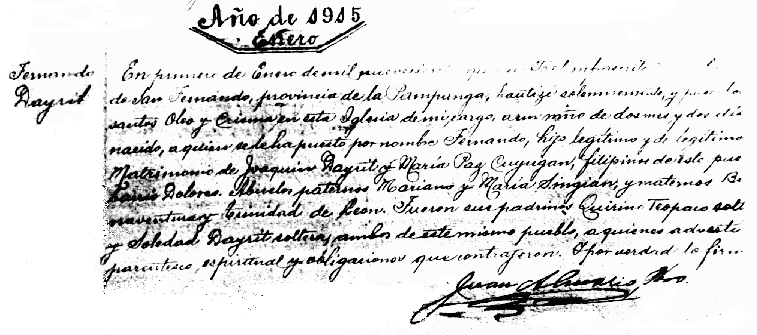 Año de 1915
Enero
Fernando
Dayrit
En primero de Enero de mil novecientos
de San Fernando, provincia de la Pampanga, bautizé solemnemente, y puse los
santos Oleo y Crisma en esta Iglesia de mi cargo, a un niño de dos mes y dos dia
nacido, a quien se le ha puesto por nombre Fernando, hijo legítimo y de legítimo
Matrimonio de Joaquin Dayrit y María Paz Cuyugan, filipinos de este pue
barrio Dolores. Abuelos paternos Mariano y María Singian, y maternos Be
naventura y Trinidad de Leon. Fueron sus padrinos Quirino Teopaco solt
y Soledad Dayrit soltera, ambos de este mismo pueblo, a quienes advertí
parentesco, espiritual y obligaciones que contrajeron. Y por verdad lo firm
Juan Almario, Pbro.